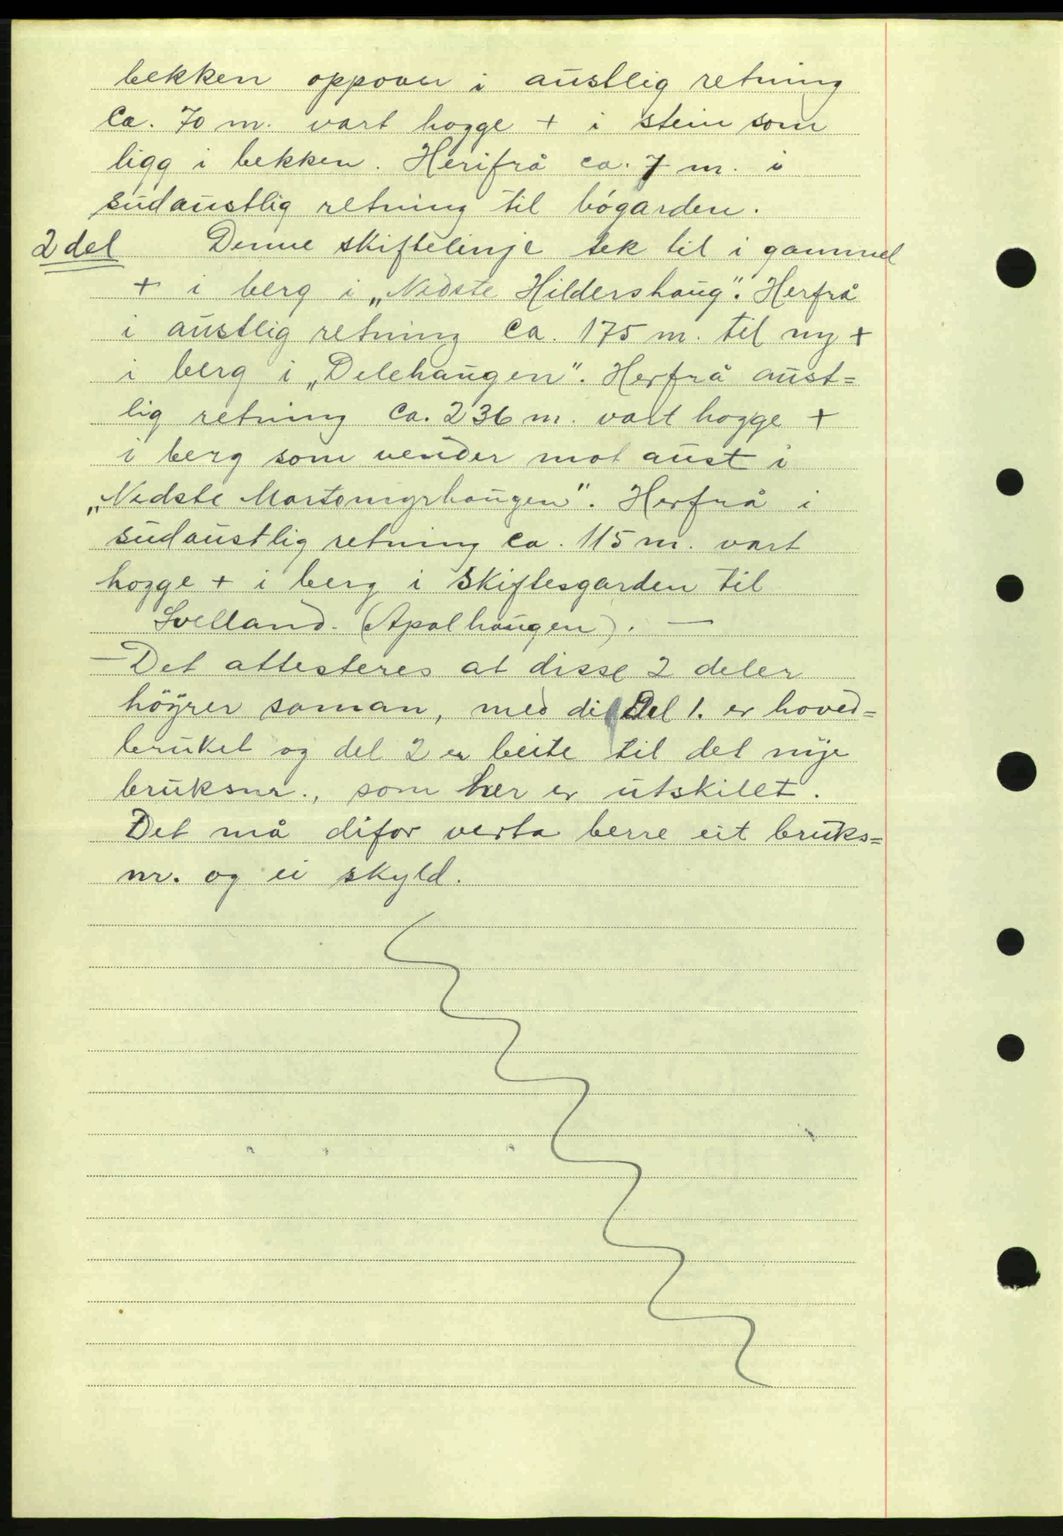 bekken oppover i austlig retning
Ca. 70 m. vart hogge + i stein som
ligg i bekken. Herifrå ca. 7 m. i
sudaustlig retning til bógarden.
2 del Denne skiftelinje tek til i gammel
+ i berg i „Nedste Hildershaug". Herfrå
i austlig retning Ca. 175 m. til ny +
i berg i „Delehaugen". Herfrå aust=
lig retning Ca. 236 m. vart hogge +
i berg som vender mot aust i
„Nedste Martemyrhaugen". Herfrå i
sudaustlig retning ca. 115 m. vart
hogge + i berg i Skiftesgarden til
Svelland. (Apalhaugen). —
— Det attesteres at disse 2 deler
höyrer saman, med di Del 1. er hoved=
bruket og del 2 er beite til det nye
bruksnr., som her er utskilet.
Det må difor verta berre eit bruks=
nr. og ei skyld.